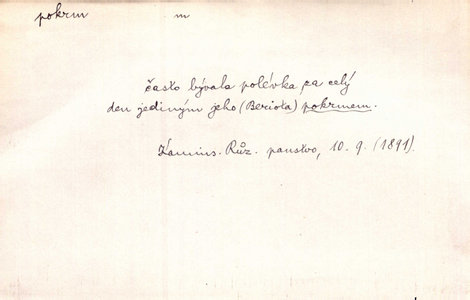 pokrm m
často bývala polévka za celý
den jediným jeho (Beriota) pokrmem.
Kamins. Růz. panstvo, 10. 9. (1891).